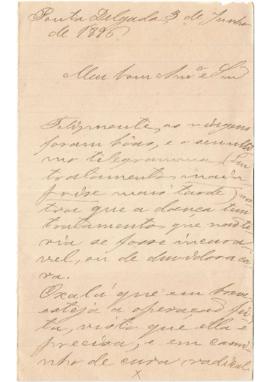 Ponta Delgada 3 de Junho
de 1896
Meu bom Am.º e Snr
Felizmente, as viagens
foram boas, e o seu ultº
mo telegramma (Sem
tratamento
frise mais tarde)
tra que a doença tem
tratamento que não te
ria se fosse incura
vel, ou de duvidosa cu
ra.
Oxalá que em breve
esteja a operação fei
ta, visto que ella é
precisa, e em cami
nho de cura radical